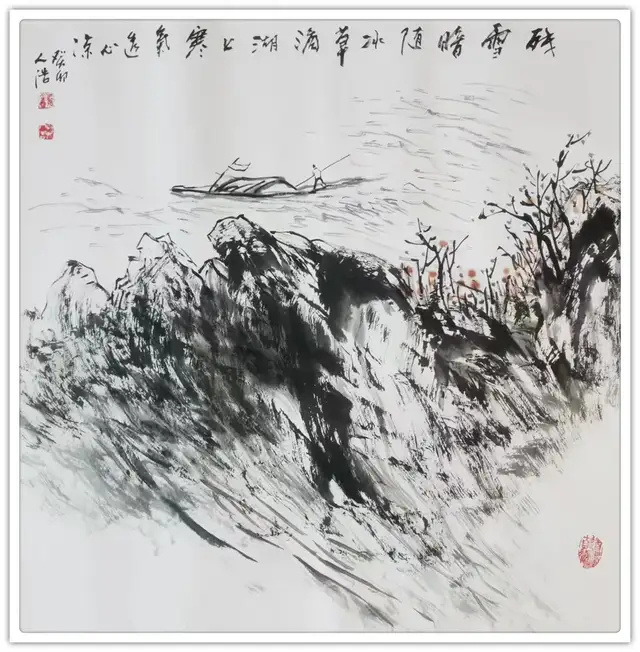 残雪暗随冰笋滴湖上寒氣透心凉
癸卯
人浩